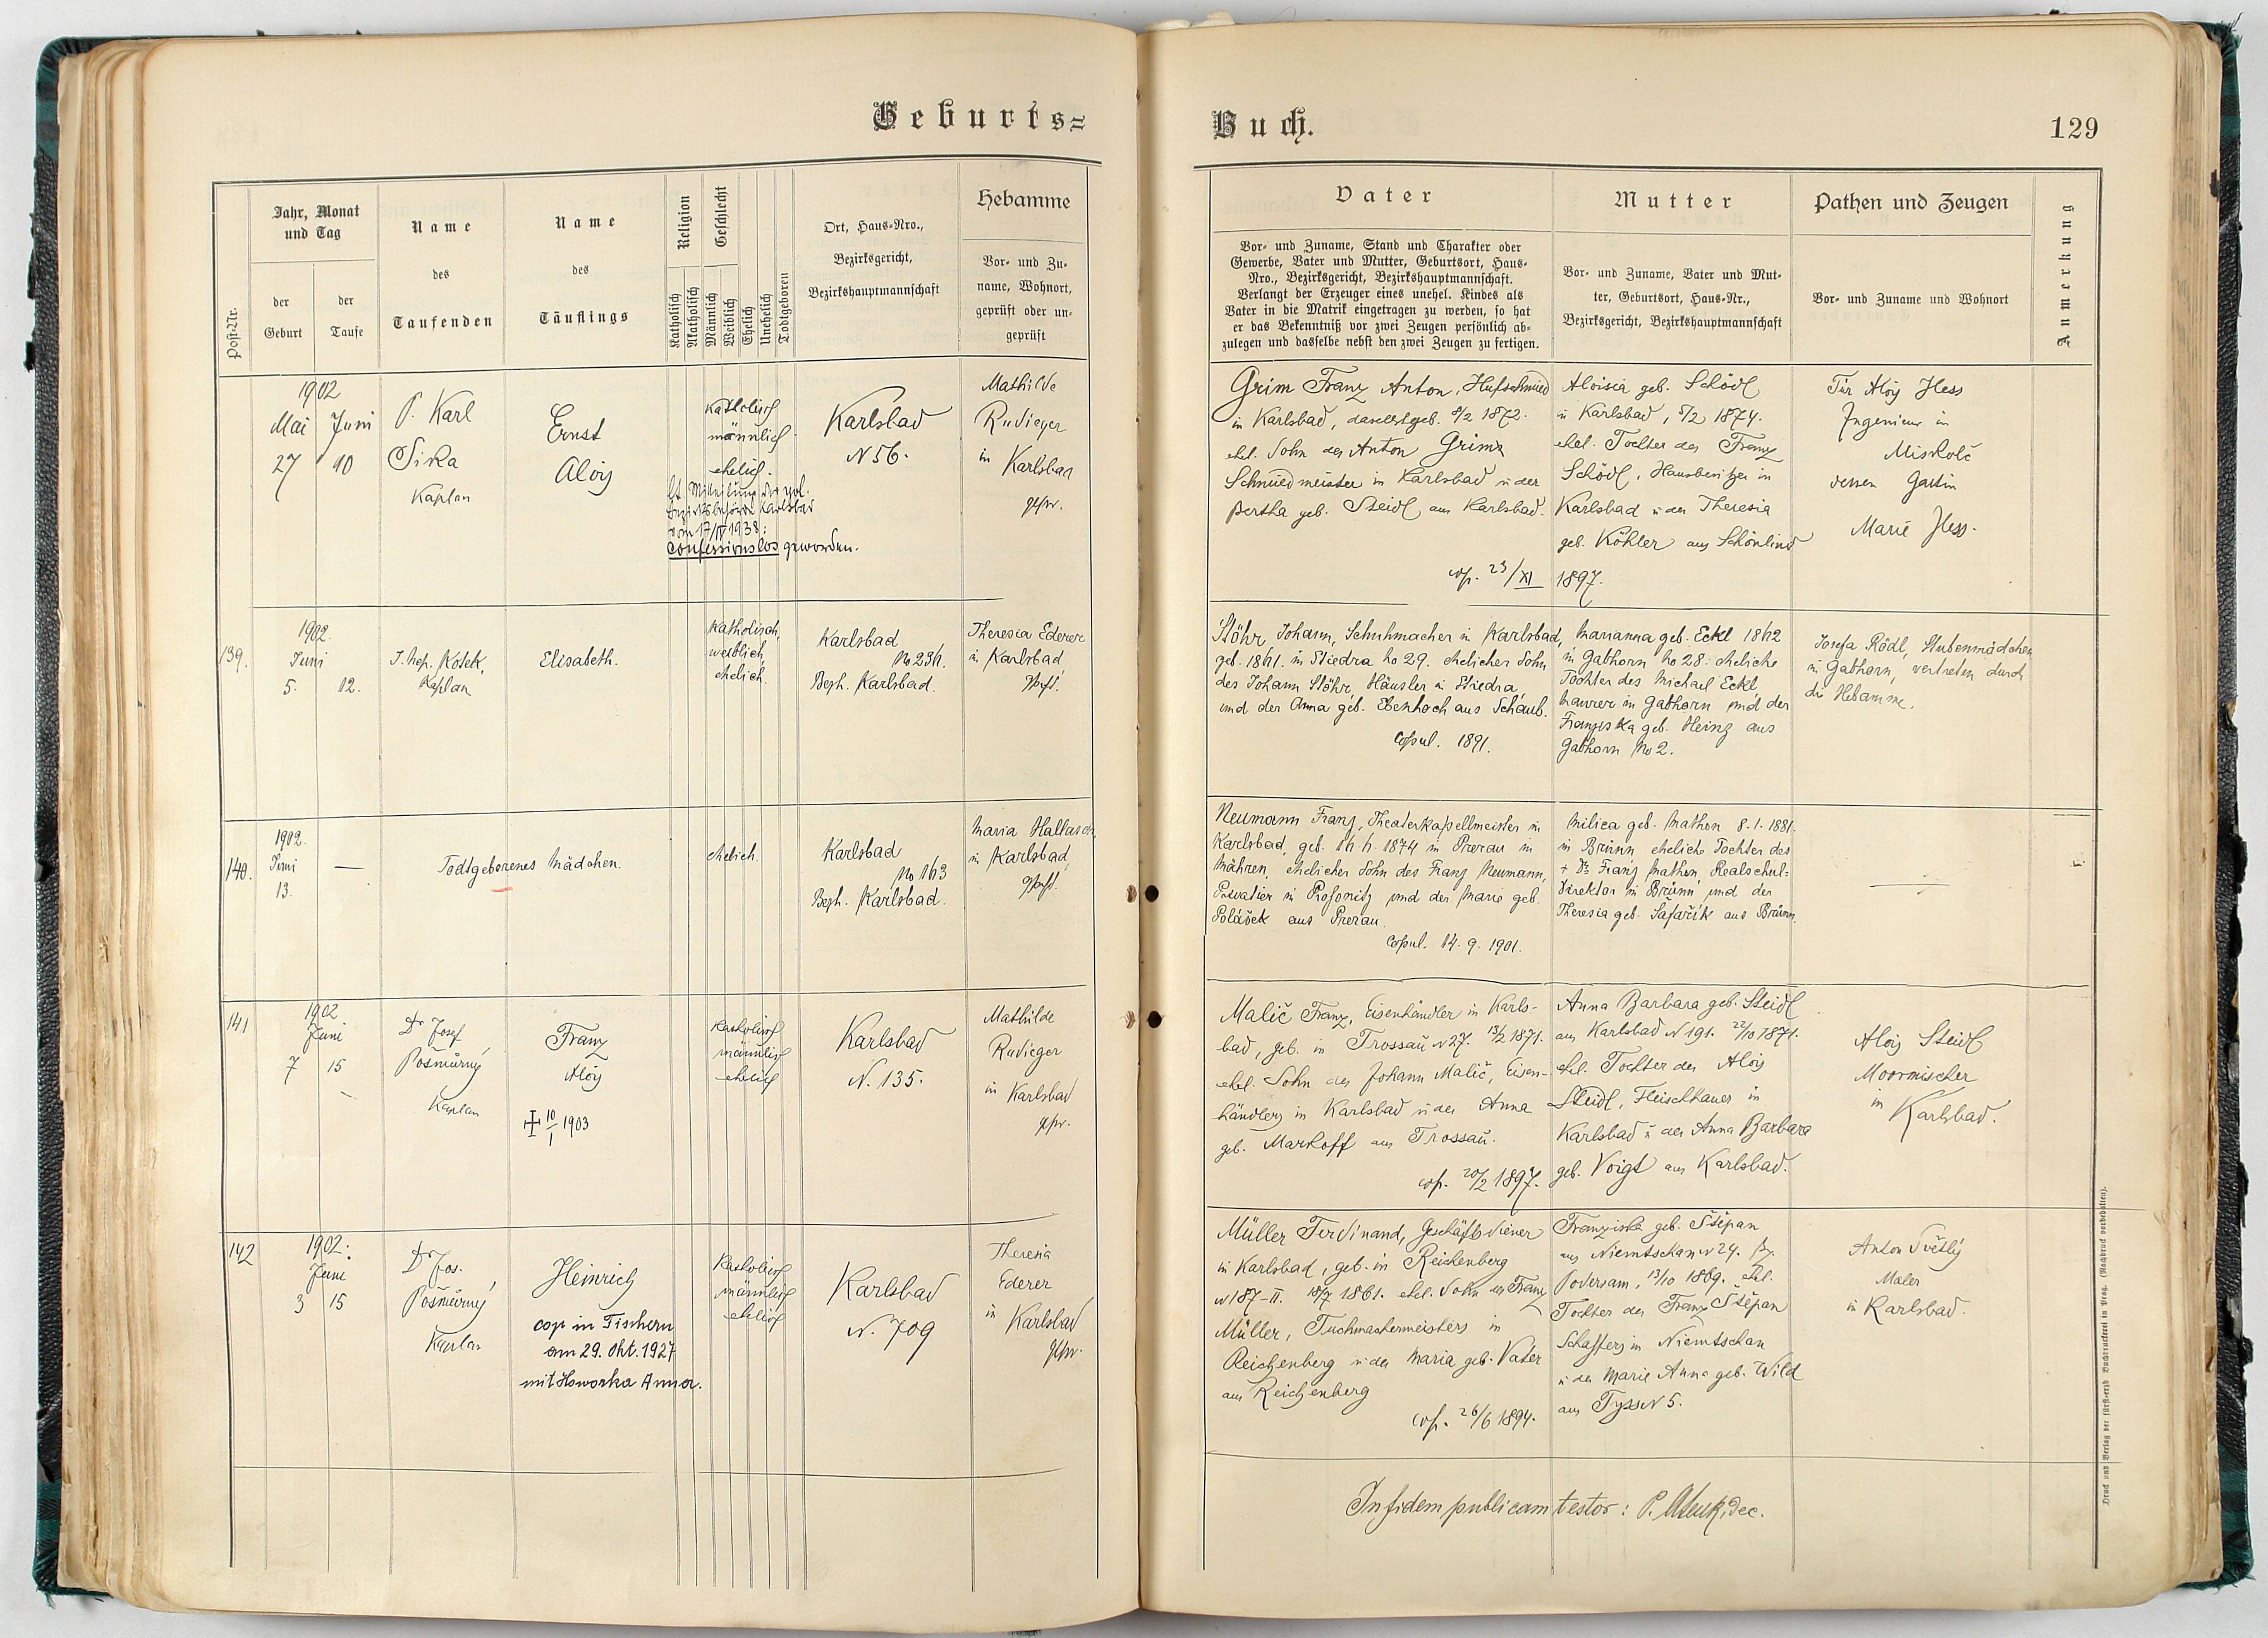 Geburts=
Buch.
129
Post-Nr.
Jahr, Monat
und Tag
der
Geburt
der
Taufe
Name
des
Taufenden
Name
des
Täuflings
Religion
Katholisch
Akatholisch
Geschlecht
Männlich
Weiblich
Ehelich
Unehelich
Todtgeboren
Ort, Haus-Nro.,
Bezirksgericht,
Bezirkshauptmannschaft
Hebamme
Vor- und Zu-
name, Wohnort,
geprüft oder un-
geprüft
Vater
Vor- und Zuname, Stand und Charakter oder
Gewerbe, Vater und Mutter, Geburtsort, Haus-
Nro., Bezirksgericht, Bezirkshauptmannschaft.
Verlangt der Erzeuger eines unehel. Kindes als
Vater in die Matrik eingetragen zu werden, so hat
er das Bekenntniß vor zwei Zeugen persönlich ab-
zulegen und dasselbe nebst den zwei Zeugen zu fertigen.
Mutter
Vor- und Zuname, Vater und Mut-
ter, Geburtsort, Haus-Nr.,
Bezirksgericht, Bezirkshauptmannschaft
Pathen und Zeugen
Vor- und Zuname und Wohnort
Anmerkung
1902
Mai Juni
27 10
P. Karl
Sika
Kaplan
Ernst
Alois
katholisch
männlich
ehelich.
Lt. Mitteilung der pol.
Bezirksbehörde Karlsbad
vom 17/IV 1938:
confessionslos geworden.
Karlsbad
N 56.
Mathilde
Rudieger
in Karlsbad
gepr.
Grim Franz Anton, Hufschmied
in Karlsbad, daselbst geb. 8/2 1872.
ehel. Sohn des Anton Grim
Schmiedmeister in Karlsbad u der
Bertha geb. Steidl aus Karlsbad.
cop. 23/XI 1897.
Aloisia geb. Schödl
in Karlsbad, 5/2 1874.
ehel. Tochter des Franz
Schödl, Hausbesitzer in
Karlsbad u der Theresia
geb. Köhler aus Schönlind
Für Alois Hess
Ingenieur in
Miskolč
dessen Gattin
Marie Hess.
139.
1902.
Juni
5. 12.
J. Nep. Kotek,
Kaplan
Elisabeth.
Katholisch,
weiblich,
ehelich.
Karlsbad
No 234.
Bezh. Karlsbad.
Theresia Ederer
in Karlsbad,
gepft.
Stöhr Johann, Schuhmacher in Karlsbad,
geb. 1861. in Stiedra No 29. ehelicher Sohn
des Johann Stöhr, Häusler in Stiedra,
und der Anna geb. Ebenhoch aus Schaub.
Copul. 1891.
Marianna geb. Eckl 1862
in Gabhorn No 28. eheliche
Tochter des Michael Eckl,
Maurer in Gabhorn und der
Franziska geb. Heinz aus
Gabhorn No 2.
Josefa Rödl, Stubenmädchen
in Gabhorn, vertreten durch
die Hebamme.
140.
1902.
Juni —
13.
Todtgeborenes Mädchen.
ehelich.
Karlsbad
No 163
Bezh. Karlsbad.
Maria Hallasch
in Karlsbad,
gepft.
Neumann Franz, Theaterkapellmeister in
Karlsbad, geb. 16. 6. 1874 in Prerau in
Mähren, ehelicher Sohn des Franz Neumann,
Privatier in Proßnitz und der Marie geb.
Poláček aus Prerau.
Copul. 14. 9. 1901.
Milica geb. Mathon 8. 1. 1881.
in Brünn eheliche Tochter des
+ Dr. Franz Mathon, Realschul-
direktor in Brünn und der
Theresia geb. Šafařik aus Brünn.
141
1902
Juni
7 15
Dr Josef
Pošmůrný
Kaplan
Franz
Alois
+ 10/1 1903
katholisch
männlich
ehelich
Karlsbad
N. 135.
Mathilde
Rudieger
in Karlsbad
gepr.
Malič Franz, Eisenhändler in Karls-
bad, geb. in Trossau N 27. 13/2 1871.
ehel. Sohn des Johann Malič, Eisen-
händlers in Karlsbad u der Anna
geb. Markoff aus Trossau.
cop. 20/2 1897.
Anna Barbara geb. Steidl
aus Karlsbad N 191. 22/10 1871.
ehel. Tochter des Alois
Steidl, Fleischhauer in
Karlsbad u der Anna Barbara
geb. Voigt aus Karlsbad.
Alois Steidl
Moormischer
in Karlsbad.
142
1902.
Juni
3 15
Dr Jos.
Pošmůrný
Kaplan
Heinrich
cop in Fischern
am 29. Okt. 1927
mit Howorka Anna.
katholisch
männlich
ehelich
Karlsbad
N. 709
Theresia
Ederer
in Karlsbad
gepr.
Müller Ferdinand, Geschäftsdiener
in Karlsbad, geb. in Reichenberg
N 187-II. 18/7 1861. ehel. Sohn des Franz
Müller, Tuchmachermeisters in
Reichenberg u der Maria geb. Vater
aus Reichenberg
cop. 26/6 1894.
Franziska geb. Štěpan
aus Niemtschau N 24. Bz.
Podersam, 13/10 1869. ehel.
Tochter des Franz Štěpan
Schaffers in Niemtschau
u der Marie Anna geb. Wild
aus Tyss N 5.
Anton Světlý
Maler
in Karlsbad.
In fidem publicam testor: P. dec.
Druck und Verlag der fürst-erzb. Buchdruckerei in Prag. (Nachdruck vorbehalten).